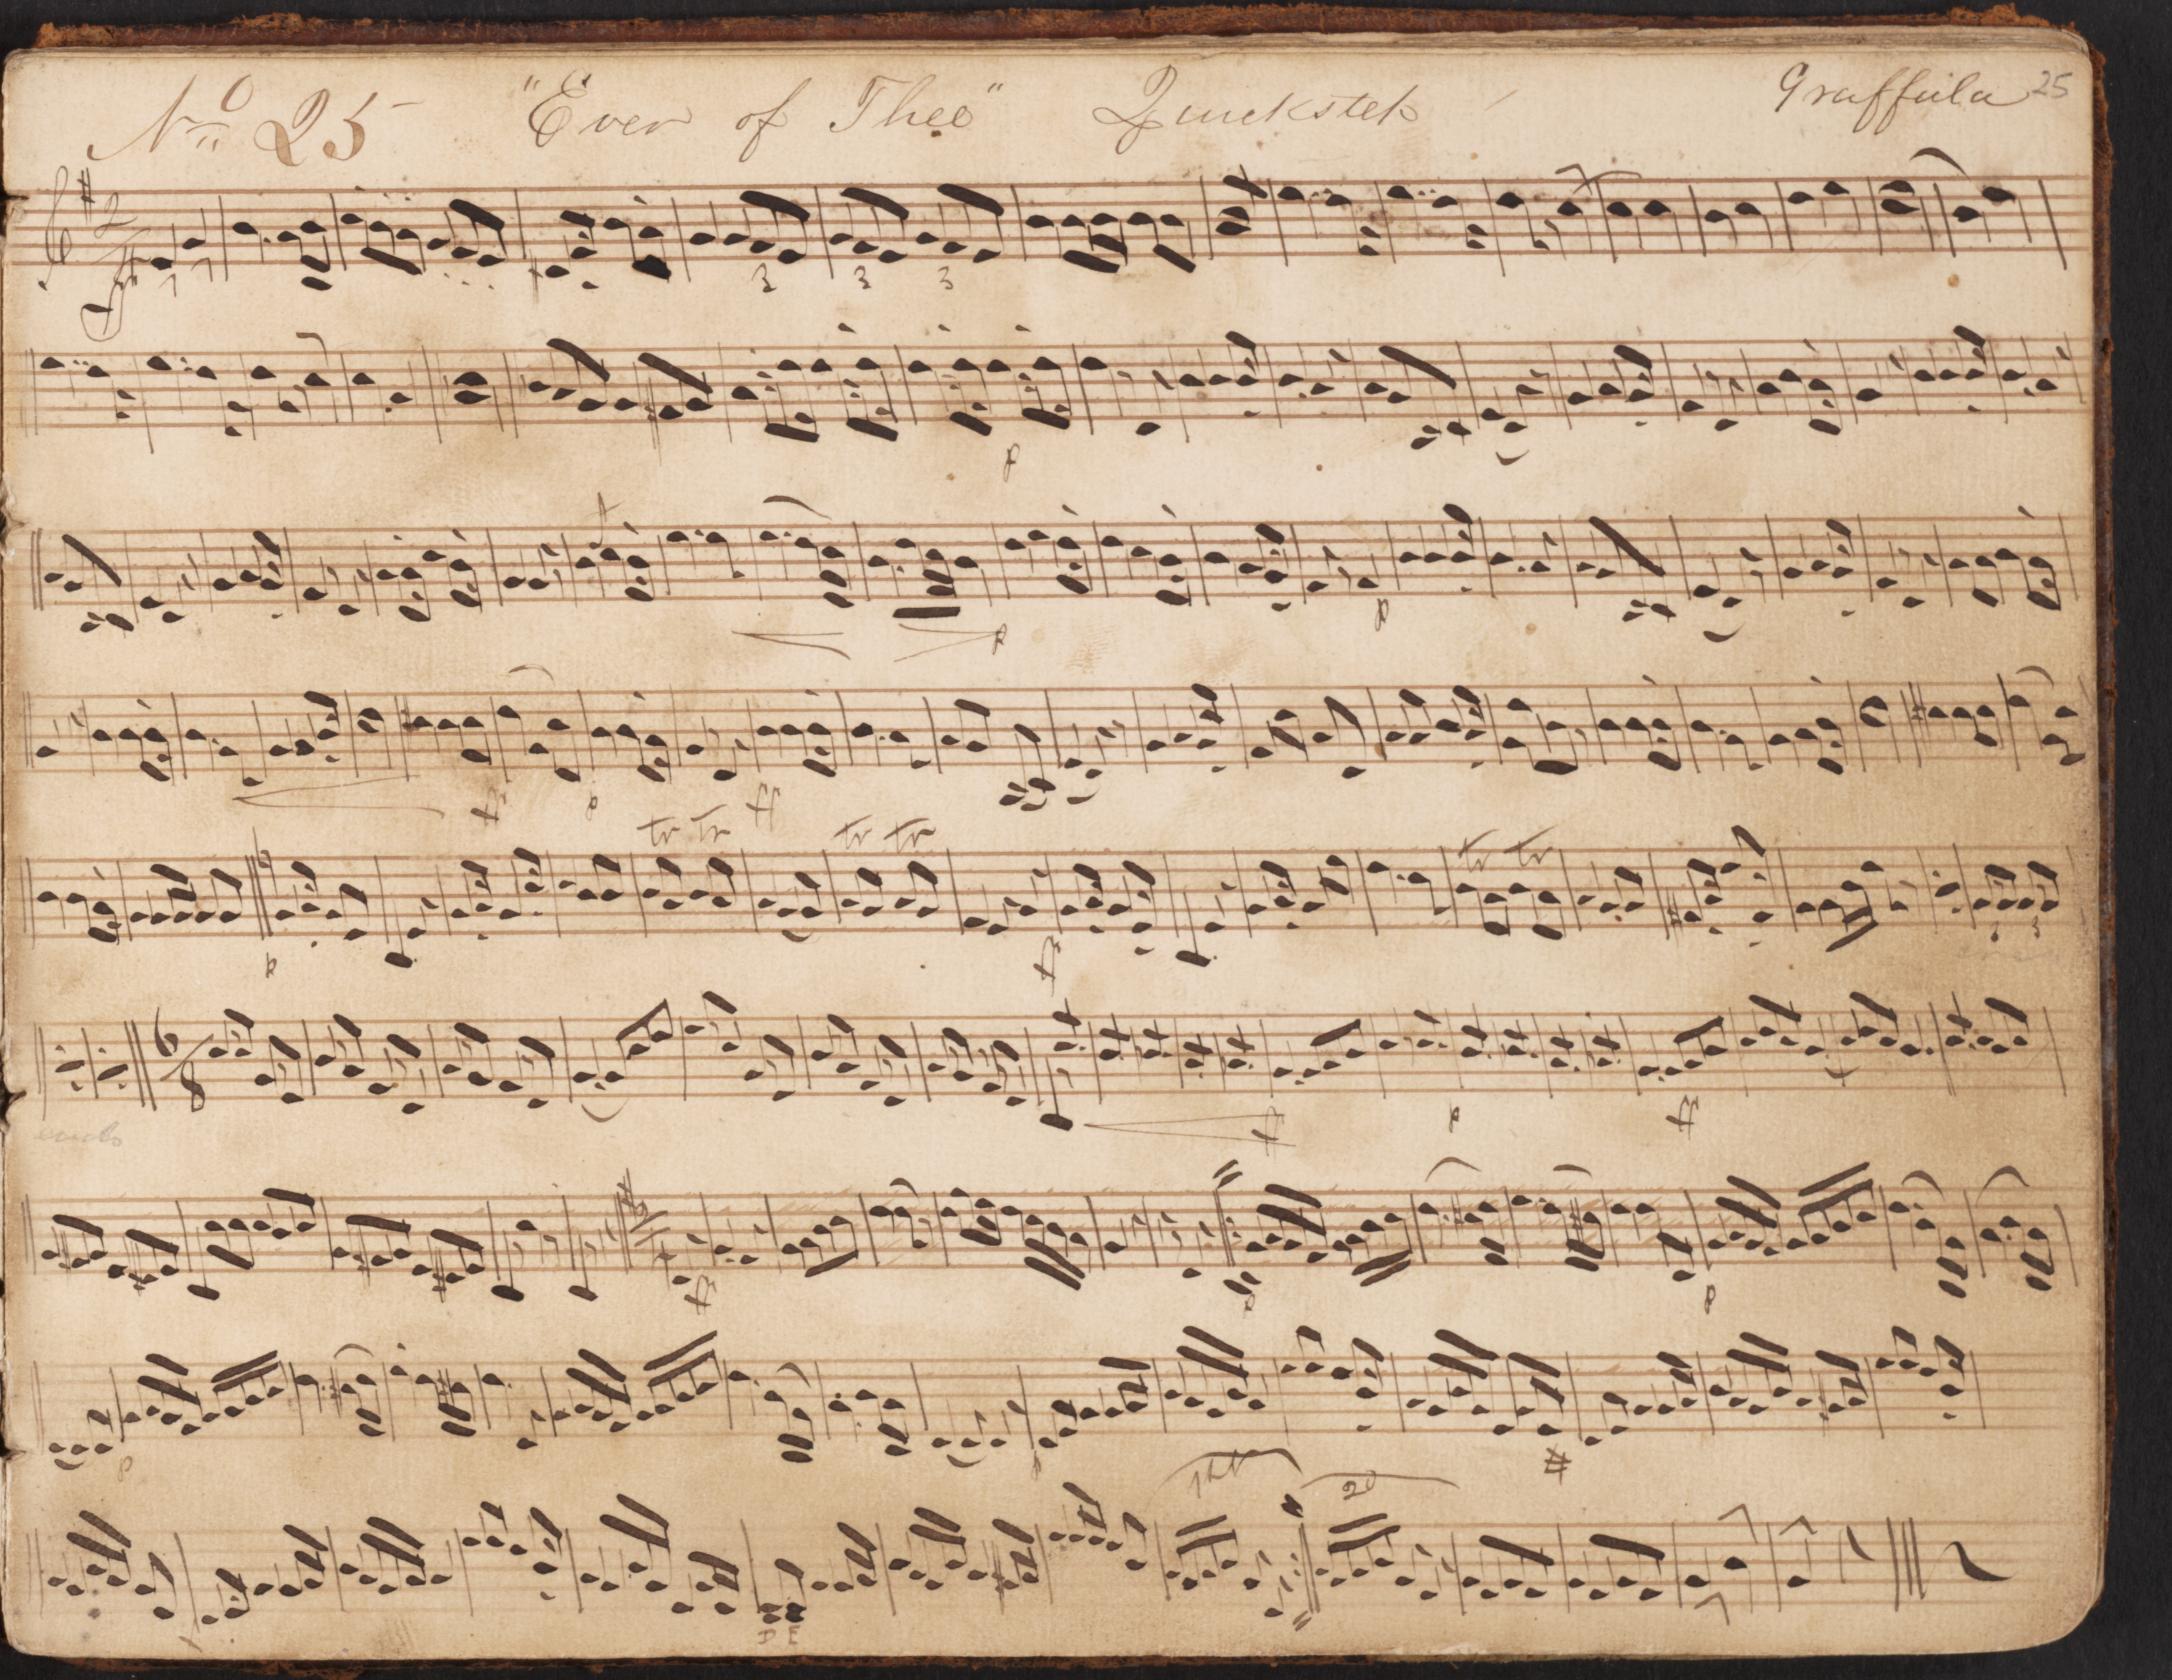 No 25 "Ever of Thee" Quickstep Graffula 25
2
ff
3 3 3
p
p p
ff p ff
tr tr tr tr tr tr
p ff
6
8
ff p ff
ff p p
p
1st 2d
D E